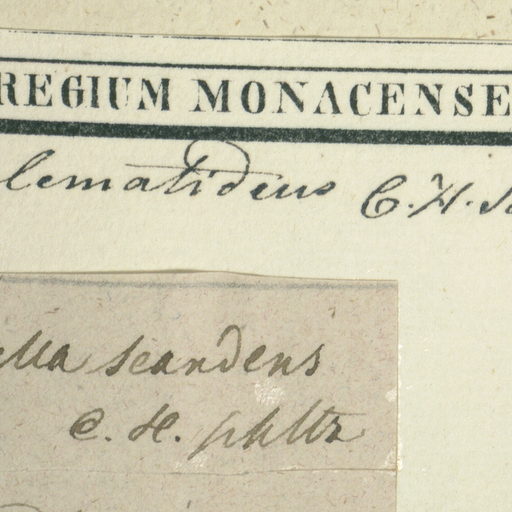 REGIUM MONACENSE
lematideus C. H. S
lla scandens
C. H. Shltz